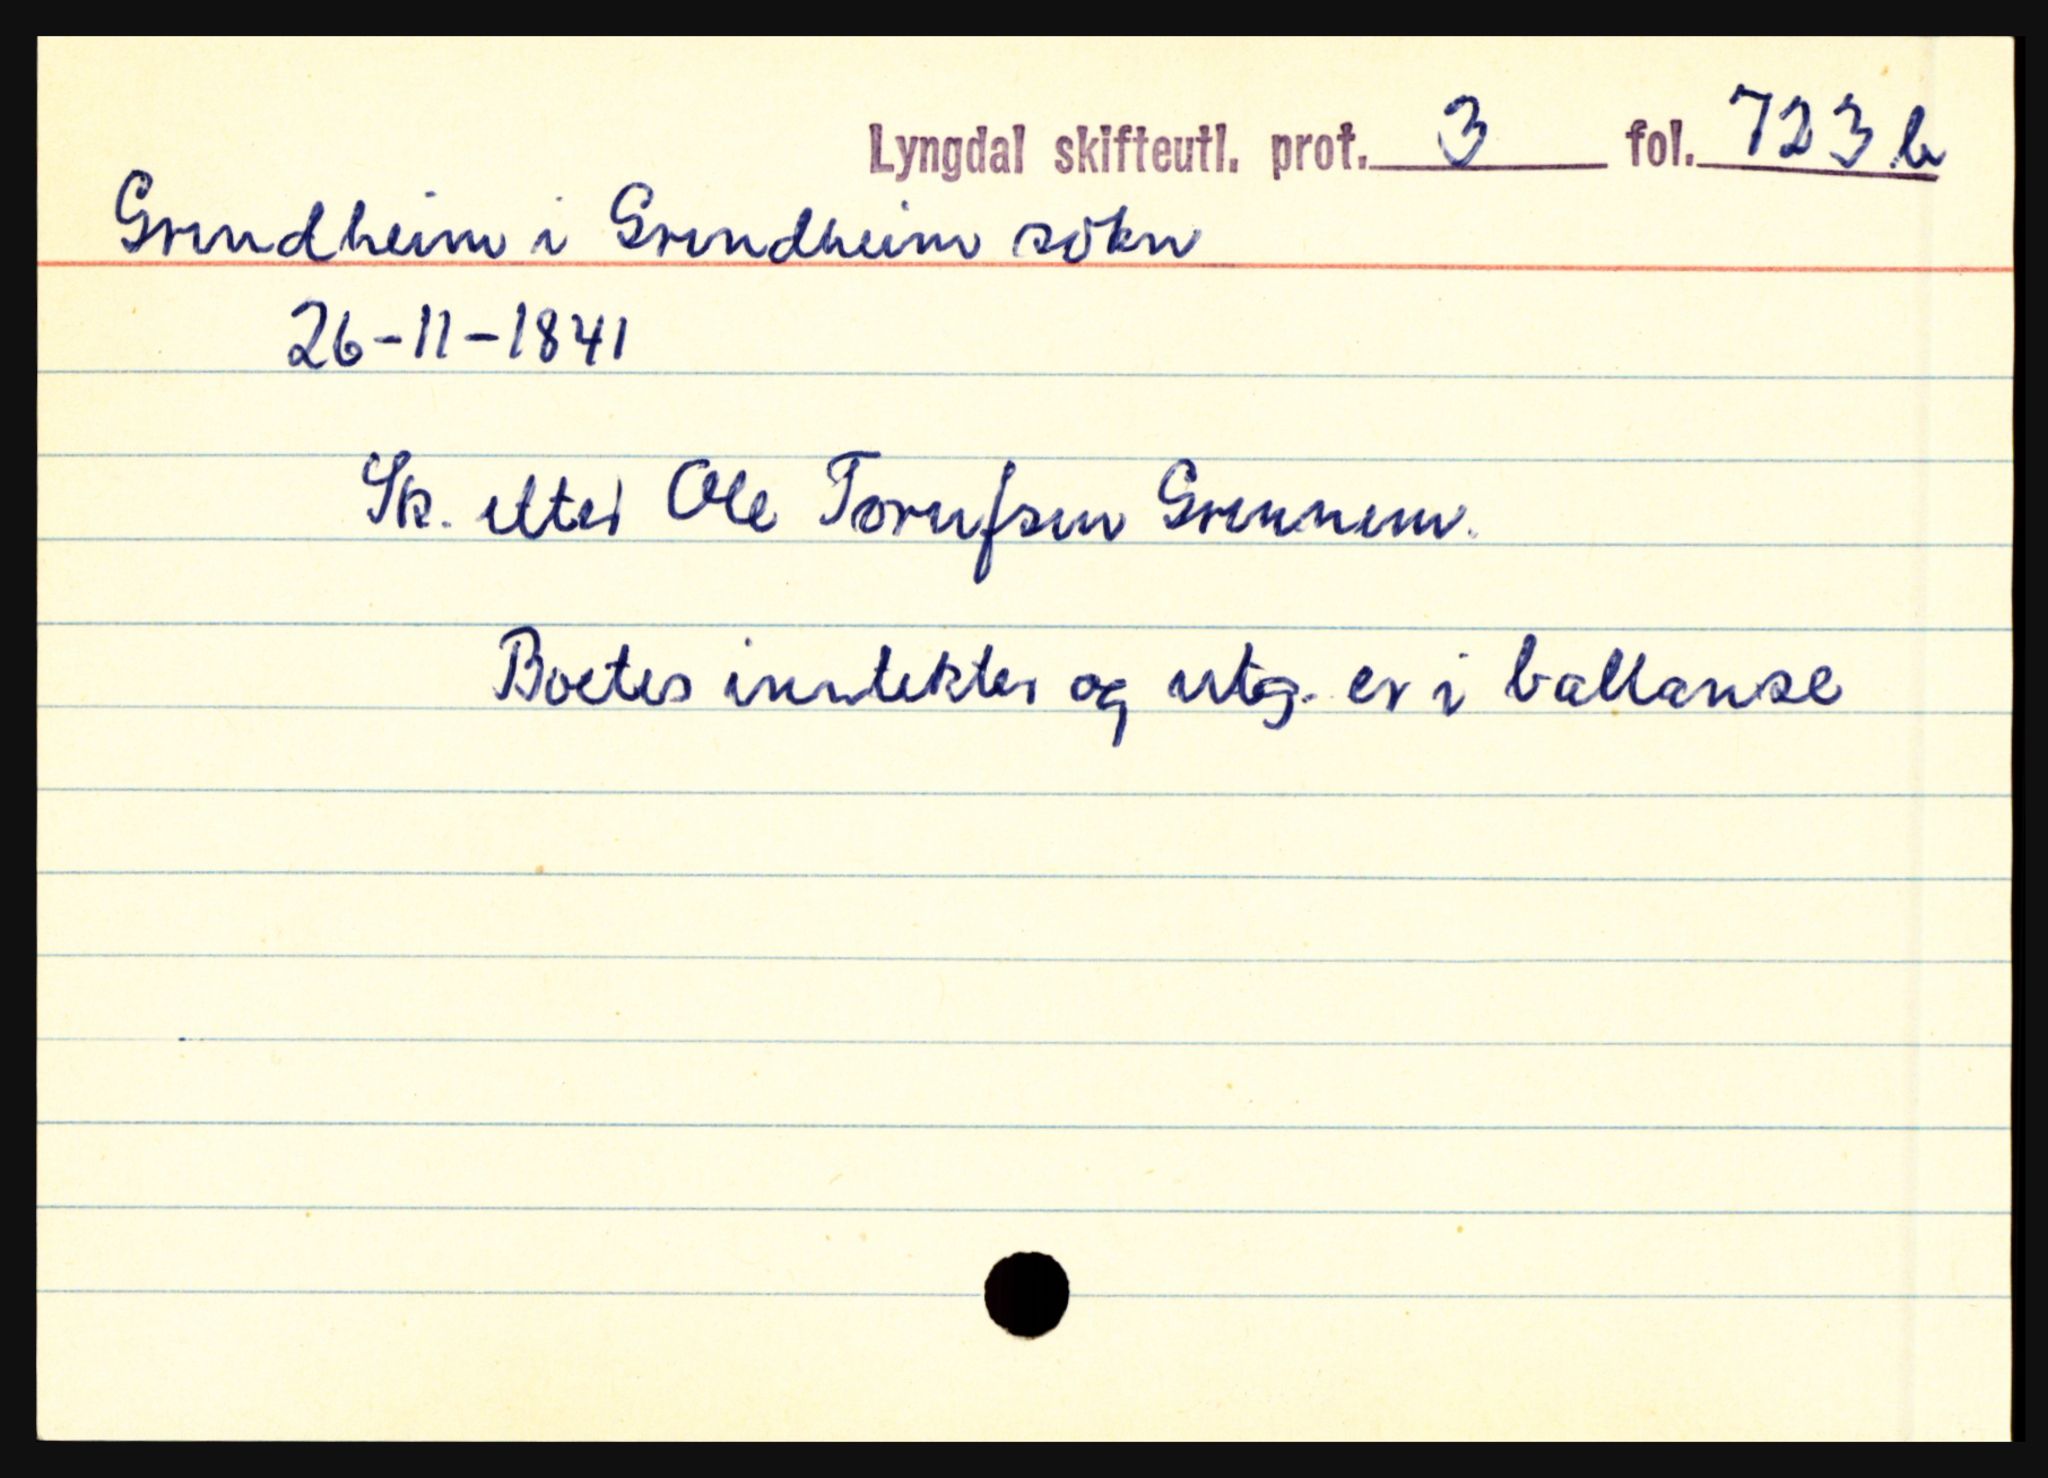 Lyngdal skifteutl. prot. 3 fol. 723 b
Grindheim i Grindheim sökn
26-11-1841
Sk. etter Ole Torufsen Grennem.
Boetes inntekter og utg. er i ballanse